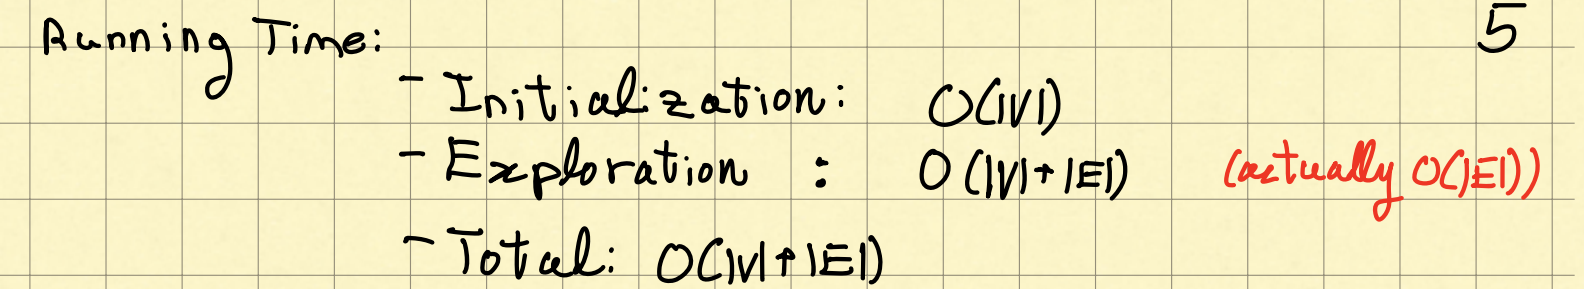 Running Time: 5
- Initialization: O(|V|)
- Exploration : O(|V|+|E|) (actually O(|E|))
- Total: O(|V|+|E|)